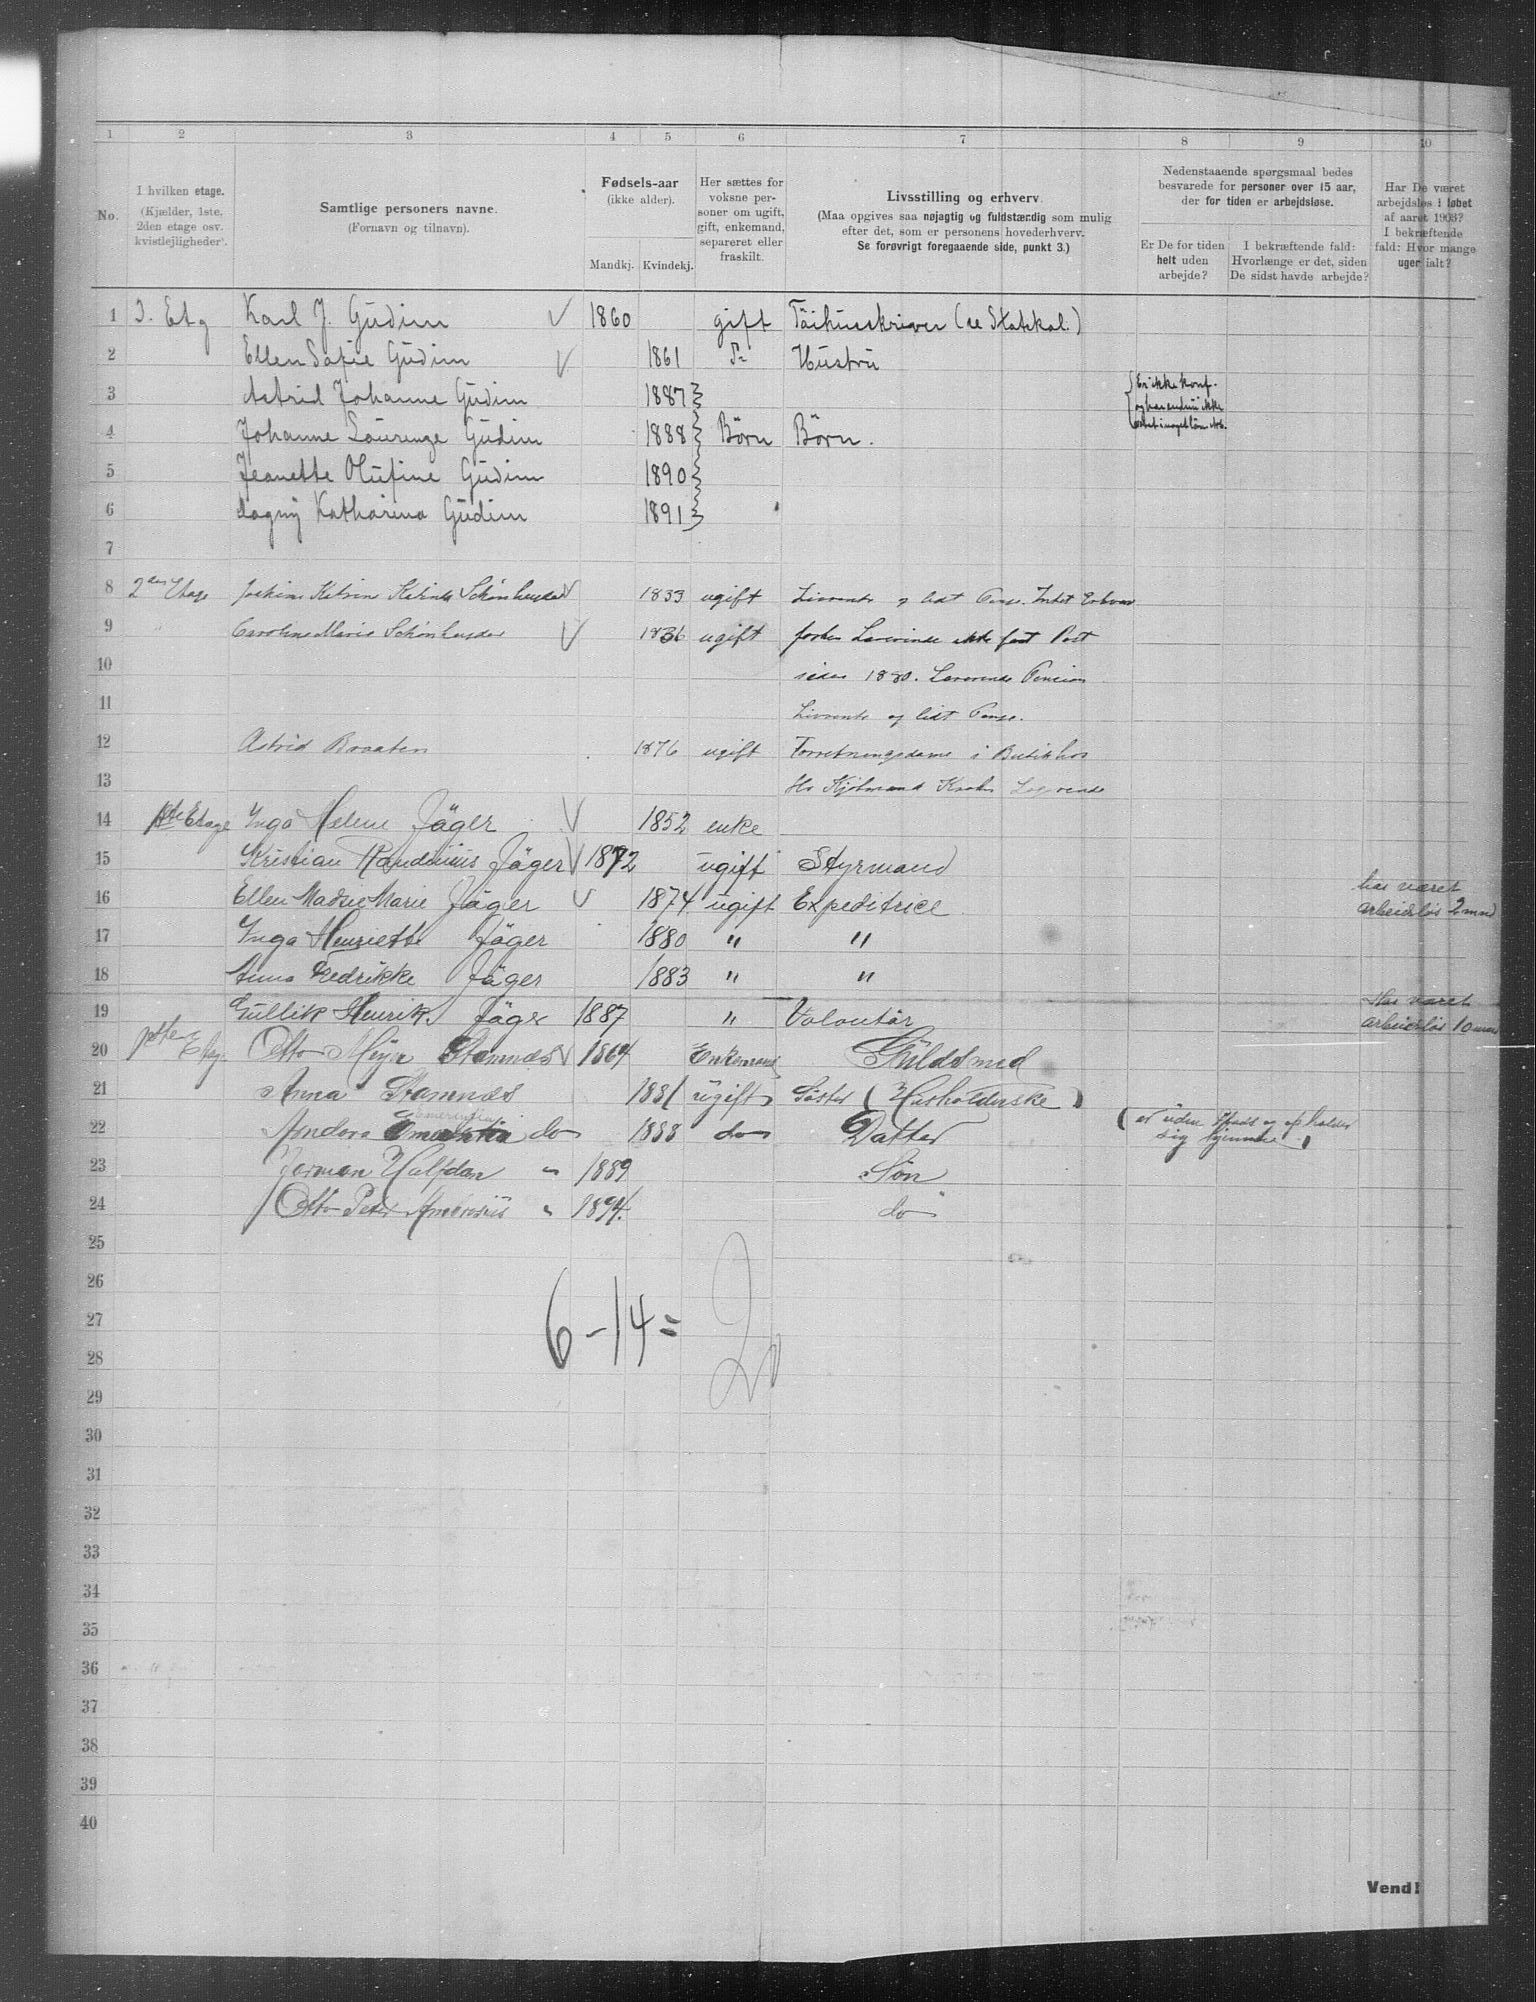 1 2 3 4 5 6 7 8 9 10
No.
I hvilken etage.
(Kjælder, 1ste,
2den etage osv.
kvistlejligheder).
Samtlige personers navne.
(Fornavn og tilnavn).
Fødsels-aar
(ikke alder).
Mandkj. Kvindekj.
Her sættes for
voksne per-
soner om ugift,
gift, enkemand,
separeret eller
fraskilt.
Livsstilling og erhverv.
(Maa opgives saa nøjagtig og fuldstændig som mulig
efter det, som er personens hovederhverv.
Se forøvrigt foregaaende side, punkt 3.)
Nedenstaaende spørgsmaal bedes
besvarede for personer over 15 aar,
der for tiden er arbejdsløse.
Er De for tiden
helt uden
arbejde?
I bekræftende fald:
Hvorlænge er det, siden
De sidst havde arbejde?
Har De været
arbejdsløs i løbet
af aaret 1903?
I bekræftende
fald: Hvor mange
uger ialt?
1 3. Etg Karl J. Gudim 1860 gift
2 Ellen Sofie Gudim 1861 Hustru
3 Astrid Johanne Gudim 1887 Er ikke konf.
4 Johanne Laurenze Gudim 1888 Børn Børn.
5 Jeanette Olufine Gudim 1890
6 Dagny Katharina Gudim 1891
7
8 2den Etage 1833 ugift Livrente og lidt Intet Erhverv
9 Caroline Marie 1836 ugift ikke fast Post
10 siden 1880. Pension
11 Livrente og lidt
12 Astrid Braaten 1876 ugift Forretningsdame i Butik hos
13
14 1ste Etage Inga Helene Jäger 1852 enke
15 Kristian Jäger 1872 ugift Styrmand
16 Ellen Madsie Marie Jäger 1874 ugift Expeditrice har været arbeidsløs 2 mnd
17 Inga Henriette Jäger 1880 " "
18 Anna Fredrikke Jäger 1883 " "
19 Gullik Henrik Jäger 1887 " Volontär Har været arbeidsløs 10 mnd
20 1ste Etag. Otto Meyer Stamnæs 1864 Enkemand Guldsmed
21 Anna Stamnæs ugift Søster (Husholderske)
22 Andora do 1888 do Datter (er uden Post og opholder
sig hjemme)
23 Herman Halfdan " 1889 Søn
24 Otto Peter Ambrosius " 1894. do
25
26
27 6 - 14 = 20
28
29
30
31
32
33
34
35
36
37
38
39
40
Vend!